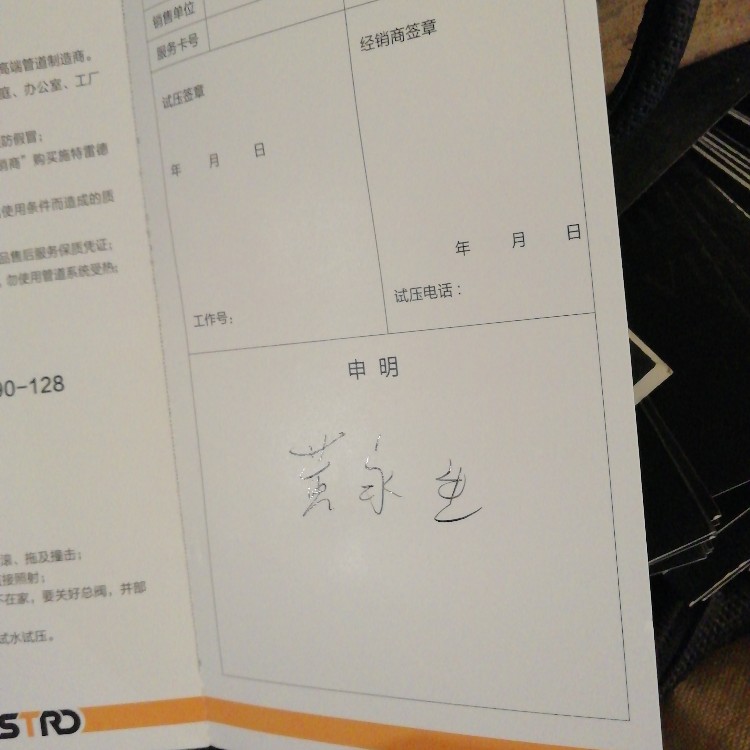 高端管道制造商。
庭、办公室、工厂
防假冒:
销商”购买施特雷德
使用条件而造成的质
品售后服务保质凭证;
勿使用管道系统受热;
90-128
滚、拖及撞击;
接照射;
不在家,要关好总阀,并部
试水试压。
STRD
销售单位
服务卡号
试压签章
年 月 日
工作号:
经销商签章
年 月 日
试压电话:
申 明
黄永